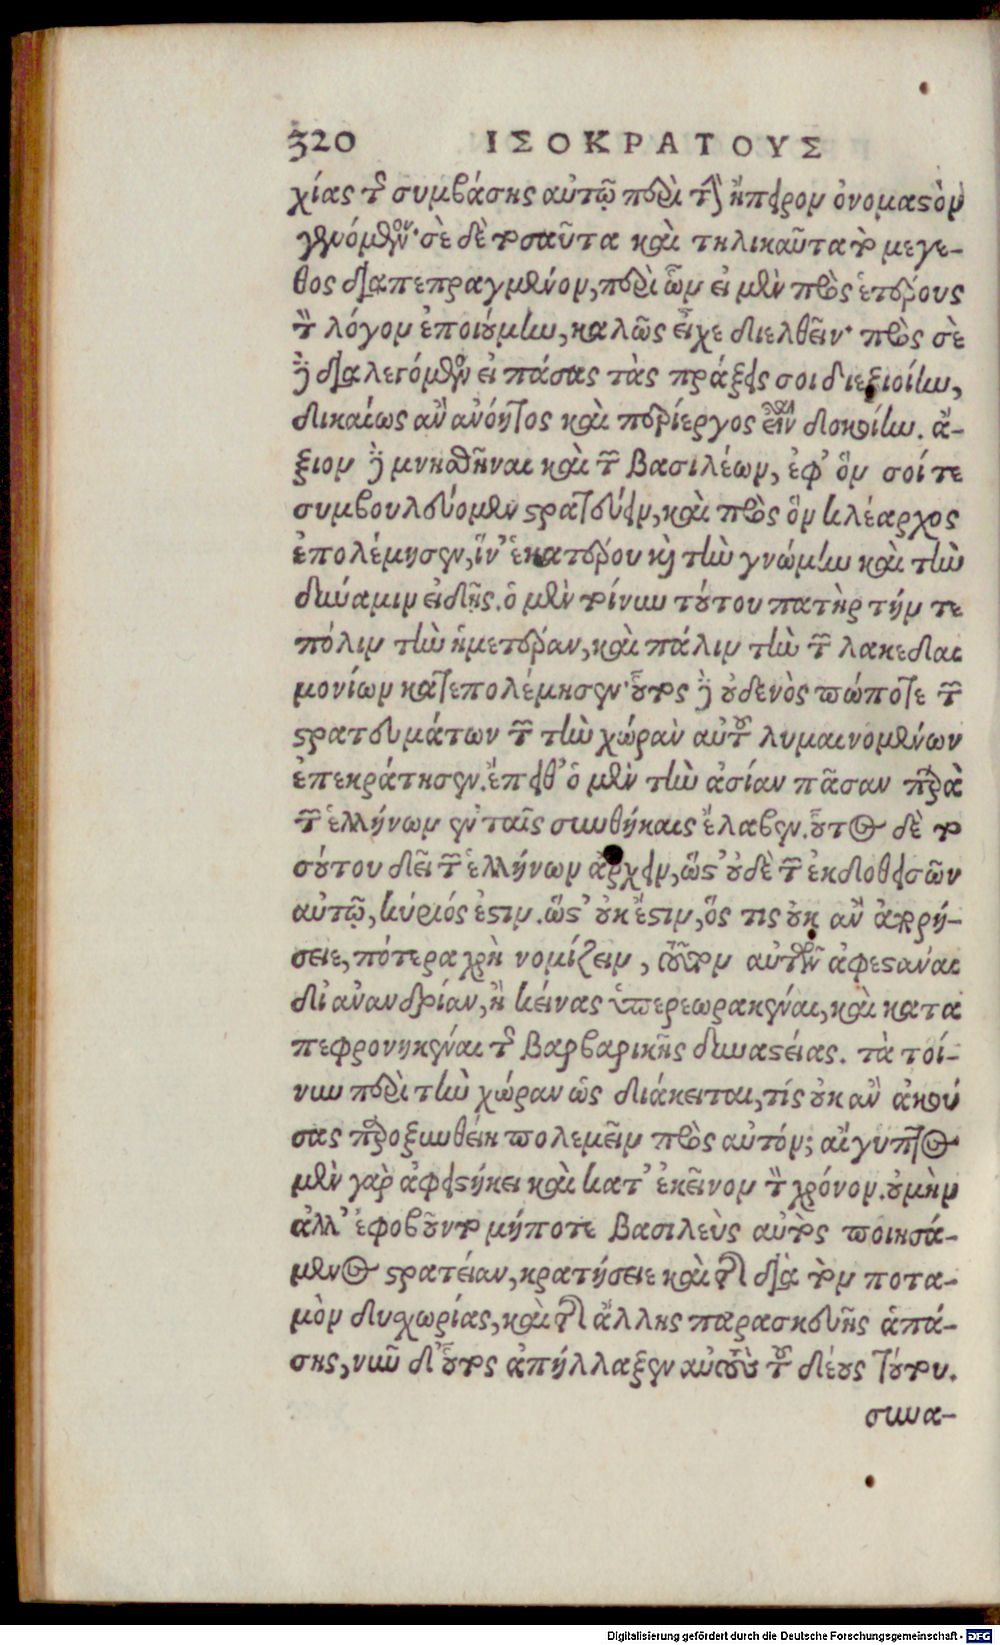 320 ΙΣΟΚΡΑΤΟΥΣ
χίας τῆς συμβάσης αὐτῷ περὶ τὴν ἤπειρον ὀνομαστὸν
γενόμενον· σὲ δὲ τοσαῦτα καὶ τηλικαῦτα τὸ μεγε-
θος διαπεπραγμένον, περὶ ὧν εἰ μὲν πρὸς ἑτέρους
τὸν λόγον ἐποιούμην, καλῶς εἶχε διελθεῖν· πρὸς σὲ
δὲ διαλεγόμενος εἰ πάσας τὰς πράξεις σοι διεξιοίην,
δικαίως ἂν ἀνόητος καὶ περίεργος εἶναι δοκοίην. ἄ-
ξιον δὲ μνησθῆναι καὶ τῶν βασιλέων, ἐφ' ὃν σοί τε
συμβουλεύομεν στρατεύειν, καὶ πρὸς ὃν κλέαρχος
ἐπολέμησεν, ἵν' ἑκατέρου καὶ τὴν γνώμην καὶ τὴν
δύναμιν εἰδῇς. ὁ μὲν τοίνυν τούτου πατὴρ τήν τε
πόλιν τὴν ἡμετέραν, καὶ πάλιν τὴν τῶν λακεδαι
μονίων κατεπολέμησεν· οὗτος δὲ οὐδενὸς πώποτε τῶν
στρατευμάτων τῶν τὴν χώραν αὐτοῦ λυμαινομένων
ἐπεκράτησεν. ἔπειθ' ὁ μὲν τὴν ἀσίαν πᾶσαν παρὰ
τῶν ἑλλήνων ἐν ταῖς συνθήκαις ἔλαβεν. οὗτος δὲ το
σούτου δεῖ τῶν ἑλλήνων ἄρχειν, ὥστ' οὐδὲ τῶν ἐκδοθεισῶν
αὐτῷ, κύριός ἐστιν. ὥστ' οὐκ ἔστιν, ὅς τις οὐκ ἂν ἀπορή-
σειε, πότερα χρὴ νομίζειν, τοῦτον αὐτῶν ἀφεστάναι
δι' ἀνανδρίαν, ἢ κείνας ὑπερεωρακέναι, καὶ κατα
πεφρονηκέναι τῆς βαρβαρικῆς δυναστείας. τὰ τοί-
νυν περὶ τὴν χώραν ὡς διάκειται, τίς οὐκ ἂν ἀκού
σας παροξυνθείη πολεμεῖν πρὸς αὐτόν; αἴγυπτος
μὲν γὰρ ἀφειστήκει καὶ κατ' ἐκεῖνον τὸν χρόνον. οὐ μὴν
ἀλλ' ἐφοβοῦντο μήποτε βασιλεὺς αὐτὸς ποιησά-
μενος στρατείαν, κρατήσειε καὶ τῆς διὰ τὸν ποτα-
μὸν δυσχωρίας, καὶ τῆς ἄλλης παρασκευῆς ἁπά-
σης, νῦν δ' οὗτος ἀπήλλαξεν αὐτοὺς τοῦ δέους τούτου.
συνα-
Digitalisierung gefördert durch die Deutsche Forschungsgemeinschaft - DFG